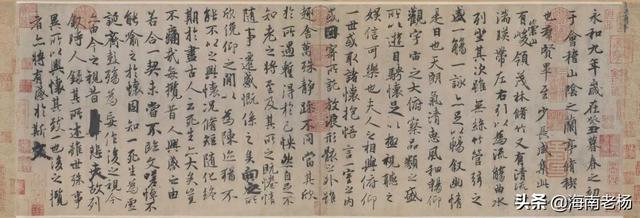 永和九年歲在癸丑暮春之初會
于會稽山陰之蘭亭脩稧事
也群賢畢至少長咸集此地
有崇山峻領茂林脩竹又有清流激
湍暎帶左右引以為流觴曲水
列坐其次雖無絲竹管弦之
盛一觴一詠亦足以暢敘幽情
是日也天朗氣清惠風和暢仰
觀宇宙之大俯察品類之盛
所以遊目騁懷足以極視聽之
娛信可樂也夫人之相與俯仰
一世或取諸懷抱悟言一室之內
或因寄所託放浪形骸之外雖
趣舍萬殊靜躁不同當其欣
於所遇暫得於己怏然自足不
知老之將至及其所之既惓情
隨事遷感慨係之矣向之所
欣俛仰之閒以為陳迹猶不
能不以之興懷況脩短隨化終
期於盡古人云死生亦大矣豈
不痛哉每攬昔人興感之由
若合一契未嘗不臨文嗟悼不
能喻之於懷固知一死生為虛
誕齊彭殤為妄作後之視今
亦由今之視昔悲夫故列
敘時人錄其所述雖世殊事
異所以興懷其致一也後之攬
者亦將有感於斯文
头条 @海南老杨